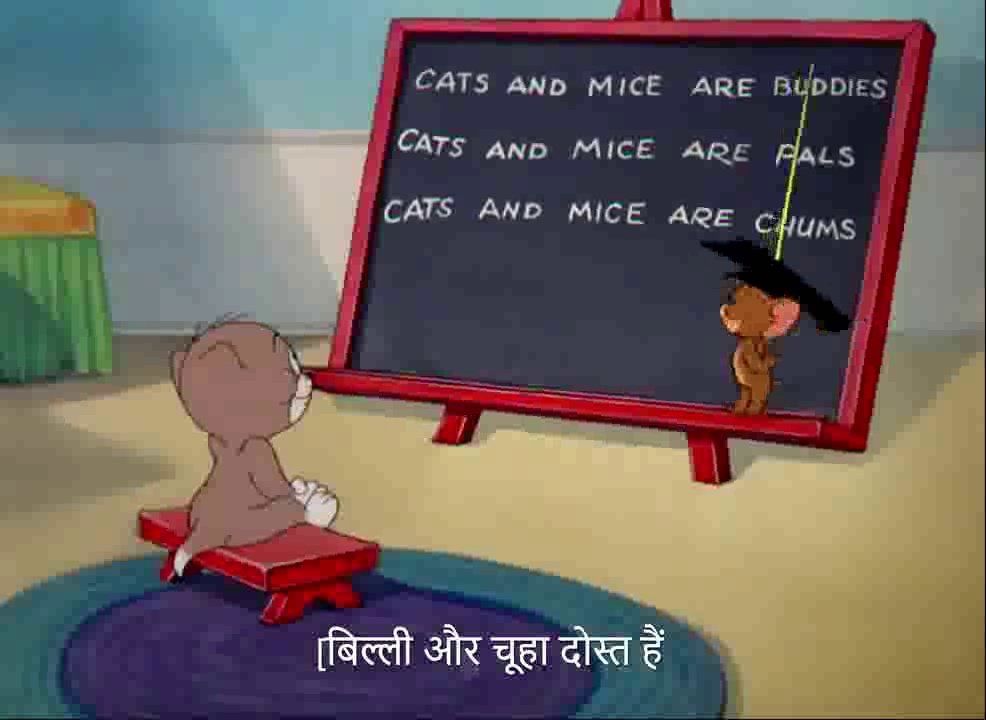 CATS AND MICE ARE BUDDIES
CATS AND MICE ARE PALS
CATS AND MICE ARE CHUMS
[बिल्ली और चूहा दोस्त हैं